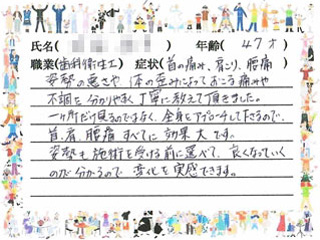 氏名( ) 年齢( 47才 )
職業(歯科衛生士) 症状(首の痛み、肩こり、腰痛
姿勢の悪さや 体の歪みによっておこる痛みや
不調を分かりやすく丁寧に教えて頂きました。
一ヶ所だけ見るのではなく、全身をアプローチして下さるので、
首、肩、腰痛すべてに効果大です。
姿勢も施術を受ける前に比べて、良くなっていく
のが分かるので 変化を実感できます。